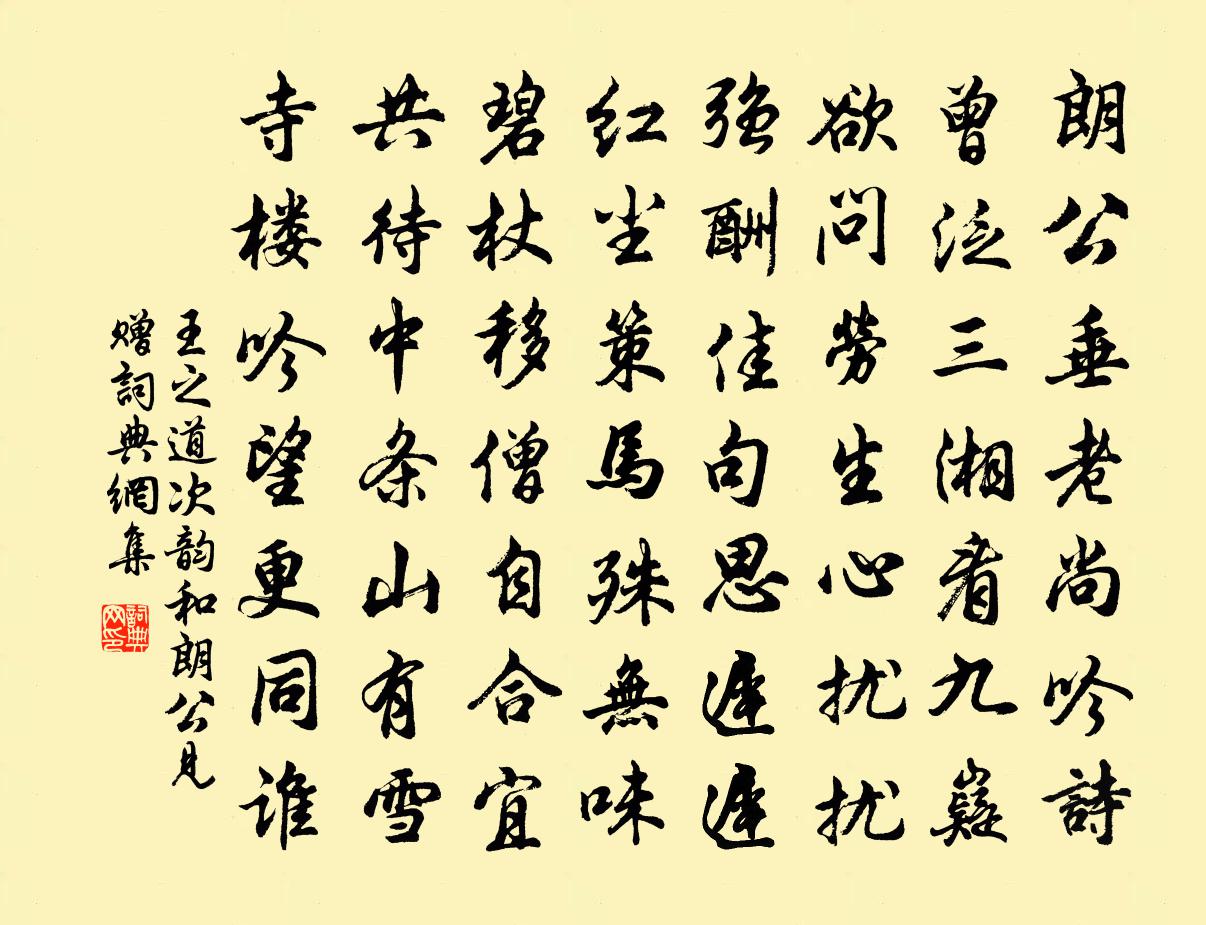 朗公垂老尚吟詩
曾泛三湘看九嶷
欲问劳生心扰扰
强酬佳句思遲遲
红尘策馬殊無味
碧杖移僧自合宜
共待中条山有雪
寺楼吟望更同谁
王之道次韵和朗公见
赠詞典網集
詞典网印